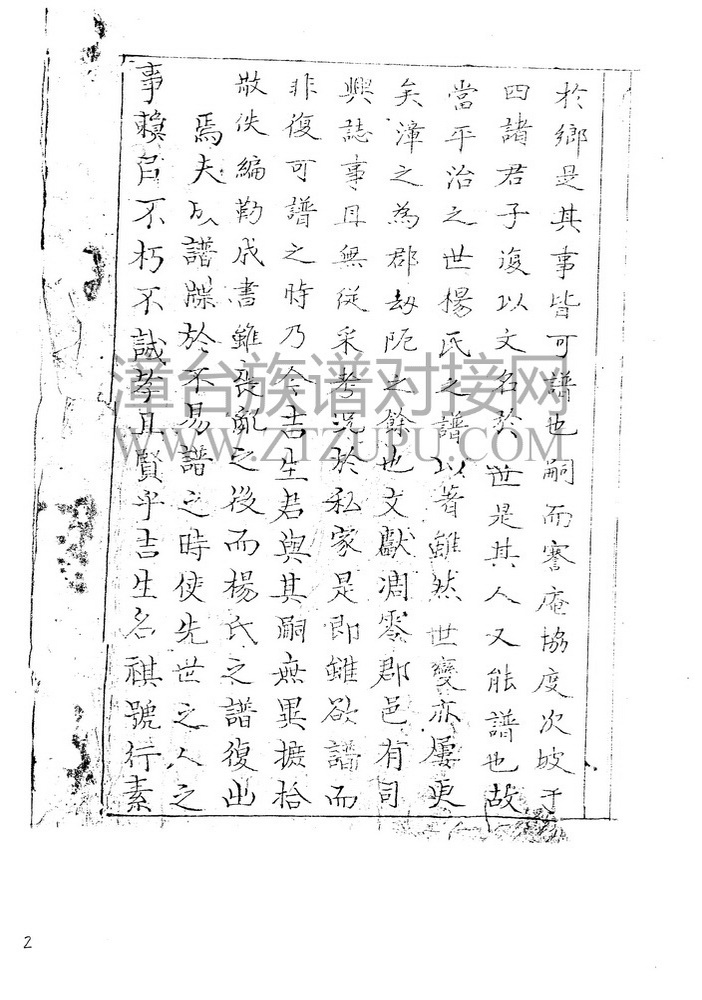 於鄉是其事皆可譜也嗣而謇庵協度次坡于
四諸君子復以文名於世是其人又能譜也故
當平治之世楊氏之譜以著雖然世變亦屢更
矣漳之為郡劫阨之餘也文獻凋零郡邑有司
興誌事且無從采考況於私家是即雖欲譜而
非復可譜之時乃今吉生君與其嗣無異摭拾
散佚編勒成書雖喪亂之後而楊氏之譜復出
焉夫以譜牒於不易譜之時使先世之人之
事賴以不朽不誠孝且賢乎吉生名祺號行素
漳台族谱对接网
WWW.ZTZUPU.COM
2